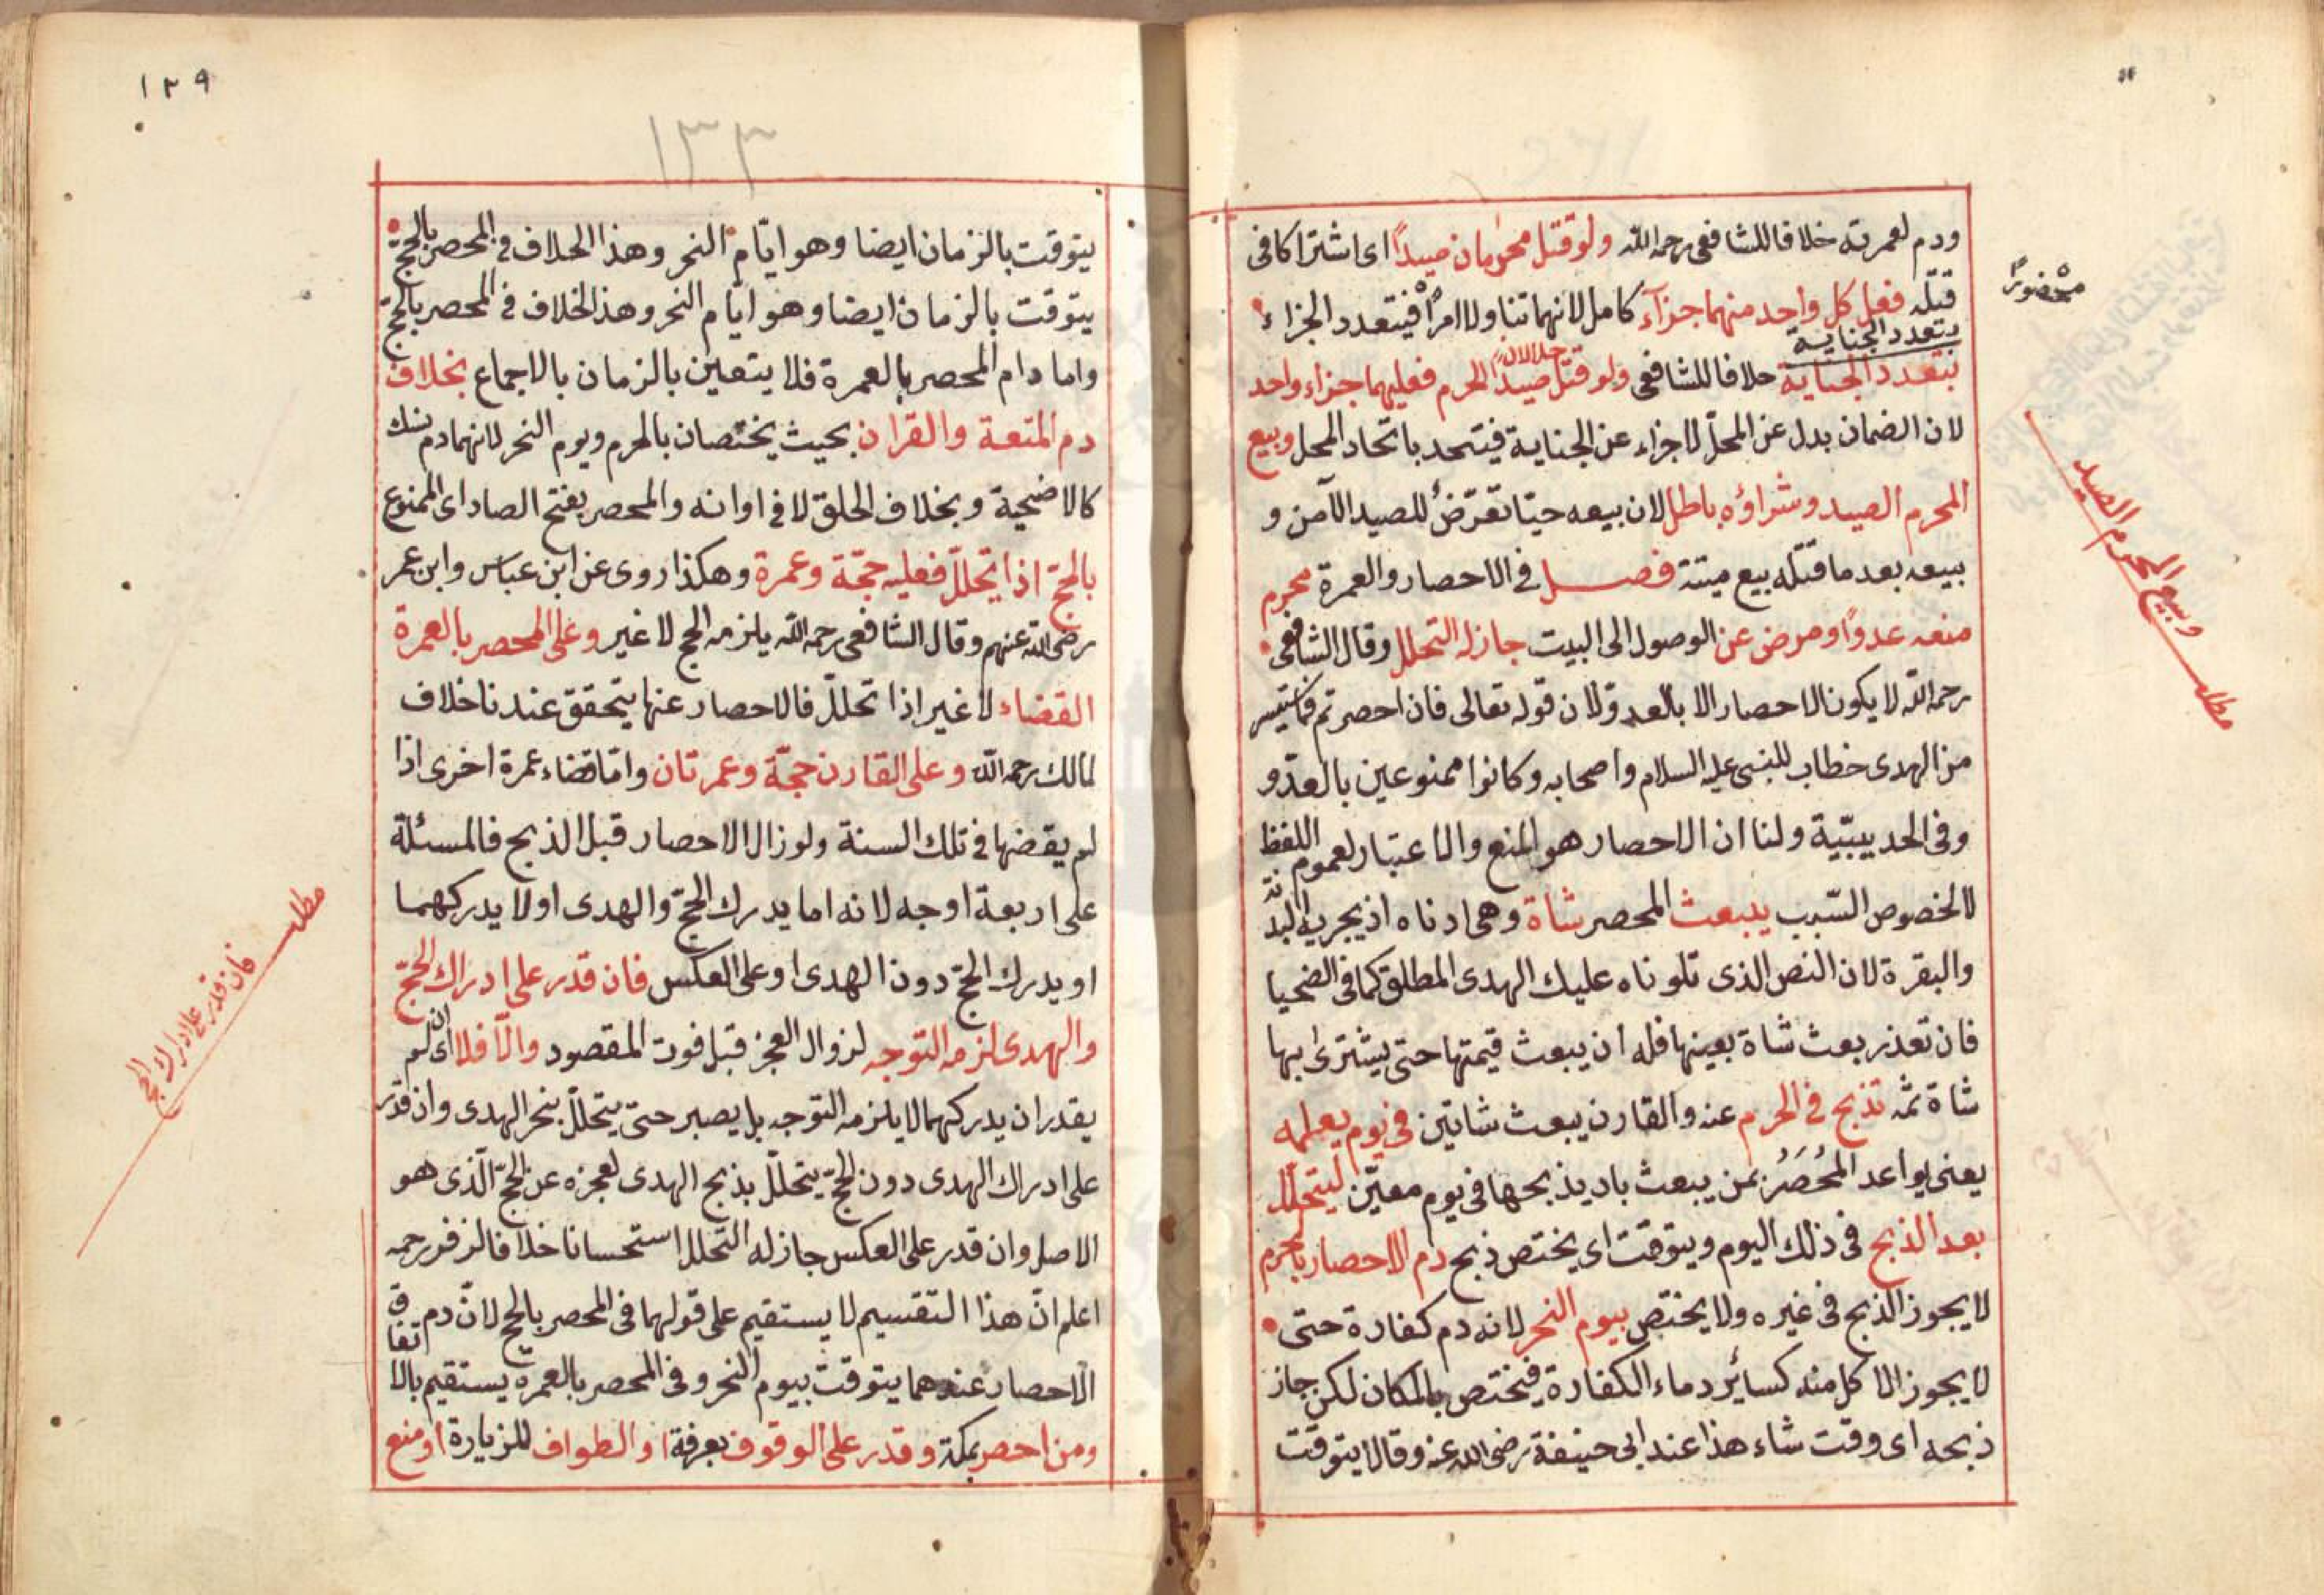 ودم لعمرته خلافا للشافعى رحمه الله ولو قتل محرمان صيداً اى اشتراكا فى
قتله فعلى كل واحد منهما جزآء كامل لانهما تناولا امراً فيتعدد الجزاء
محضوراً
بتعدد الجناية
بتعدد الجناية خلافا للشافعى ولو قتل صيد الحرم فعليهما جزاء واحد
حلالان
لان الضمان بدل عن المحل لا جزاء عن الجناية فيتحد باتحاد المحل وبيع
المحرم الصيد وشراؤه باطل لان بيعه حيّا تعرّض للصيد الآمن و
وبيع المحرم الصيد
مطلب
بيعه بعد ما قتله بيع ميتة فصل فى الاحصار والعمرة محرم
منعه عدوّ او مرض عن الوصول الى البيت جاز له التحلل وقال الشافعى
رحمه الله لا يكون الاحصار الا بالعدو لان قوله تعالى فان احصرتم فما استيسر
من الهدى خطاب للنبى عليه السلام واصحابه وكانوا ممنوعين بالعدّو
وفى الحديبيّية ولنا ان الاحصار هو المنع والاعتبار لعموم اللفظ
لا لخصوص السّبب يبعث المحصر شاة وهى ادناه اذ يجزيه البدنة
والبقرة لان النص الذى تلوناه عليك الهدى المطلق كما فى الضحيا
فان تعذر بعث شاة بعينها فله ان يبعث قيمتها حتى يشترى بها
شاة ثمّه تذبح فى الحرم عنه والقارن يبعث شاتين فى يوم يعلمه
يعنى يواعد المُحصَرُ بمن يبعث بان يذبحها فى يوم معيّن ليتحلّل
بعد الذبح فى ذلك اليوم ويتوقت اى يختص ذبح دم الاحصار بالحرم
لا يجوز الذبح فى غيره ولا يختص بيوم النحر لانه دم كفارة حتى
لا يجوز الاكل منه كسائر دماء الكفارة فيختص بالمكان لكن جاز
ذبحه اى وقت شاء هذا عند ابى حنيفة رضى الله عنه وقالا يتوقت
١٣٩
١٣٣
يتوقت بالزمان ايضا وهو ايّام النحر وهذا الخلاف فى المحصر بالحجّ
يتوقت بالزمان ايضا وهو ايّام النحر وهذ الخلاف فى المحصر بالحجّ
واما دام المحصر بالعمرة فلا يتعين بالزمان بالاجماع بخلاف
دم المتعة والقران بحيث يختصان بالحرم ويوم النحر لانهما دم نسك
كالاضحية وبخلاف الحلق لا فى اوانه والمحصر بفتح الصاد اى الممنوع
بالحجّ اذا يتحلّل فعليه حجّة وعمرة وهكذا روى عن ابن عباس وابن عمر
رضى الله عنهم وقال الشافعى رحمه الله يلزمه الحج لا غير وعلى المحصر بالعمرة
القضاء لا غير اذا تحلّل فالاحصار عنها يتحقق عندنا خلاف
لمالك رحمه الله وعلى القارن حجّة وعمرتان وامّا قضاء عمرة اخرى اذا
لم يقضها فى تلك السنة ولو زال الاحصار قبل الذبح فالمسئلة
على اربعة اوجه لانه اما يدرك الحجّ والهدى اولا يدركهما
او يدرك الحجّ دون الهدى او على العكس فان قدر على ادراك الحجّ
مطلب
فان قدر على ادراك الحج
والهدى لزمه التوجه لزوال العجز قبل فوت المقصود والّا فلا اى ان لم
يقدر ان يدركهما لا يلزمه التوجه بل يصبر حتى يتحلّل بنحر الهدى وان قدر
على ادراك الهدى دون الحجّ يتحلّل بذبح الهدى لعجزه عن الحجّ الّذى هو
الاصل وان قدر على العكس جاز له التحلل استحسانا خلافا لزفر رحمه
اعلم انّ هذا التقسيم لا يستقيم على قولهما فى المحصر بالحج لانّ دم
الاحصار عندهما يتوقت بيوم النحر وفى المحصر بالعمره يستقيم بالاتفاق
ومن احصر بمكة وقدر على الوقوف بعرفة او الطواف للزيارة او منع